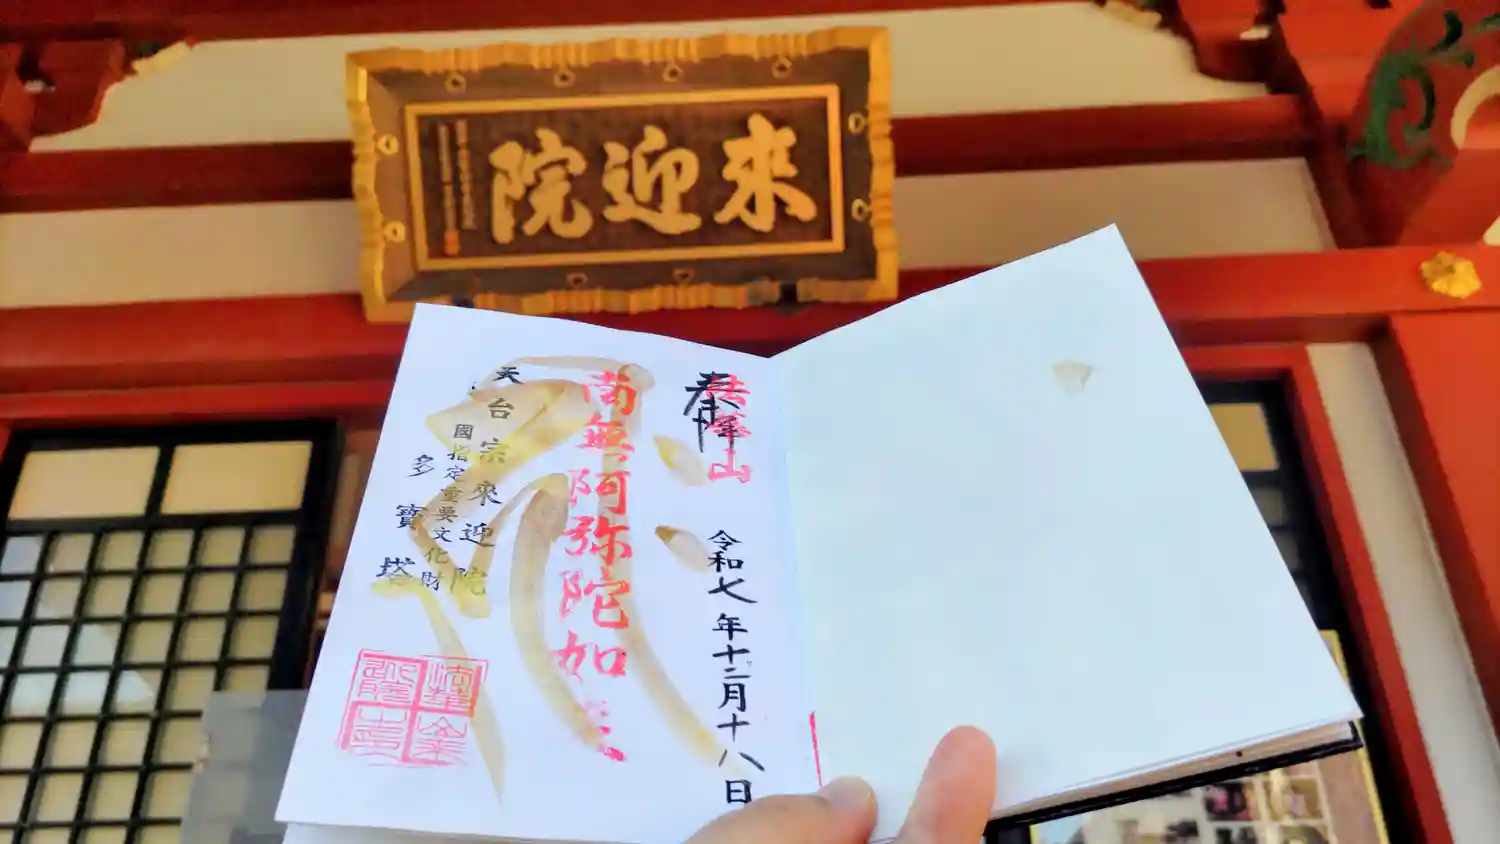 來迎院
奉拝
法華山
令和七年十二月十八日
南無阿弥陀如来
天台宗來迎院
國指定重要文化財
多寶塔